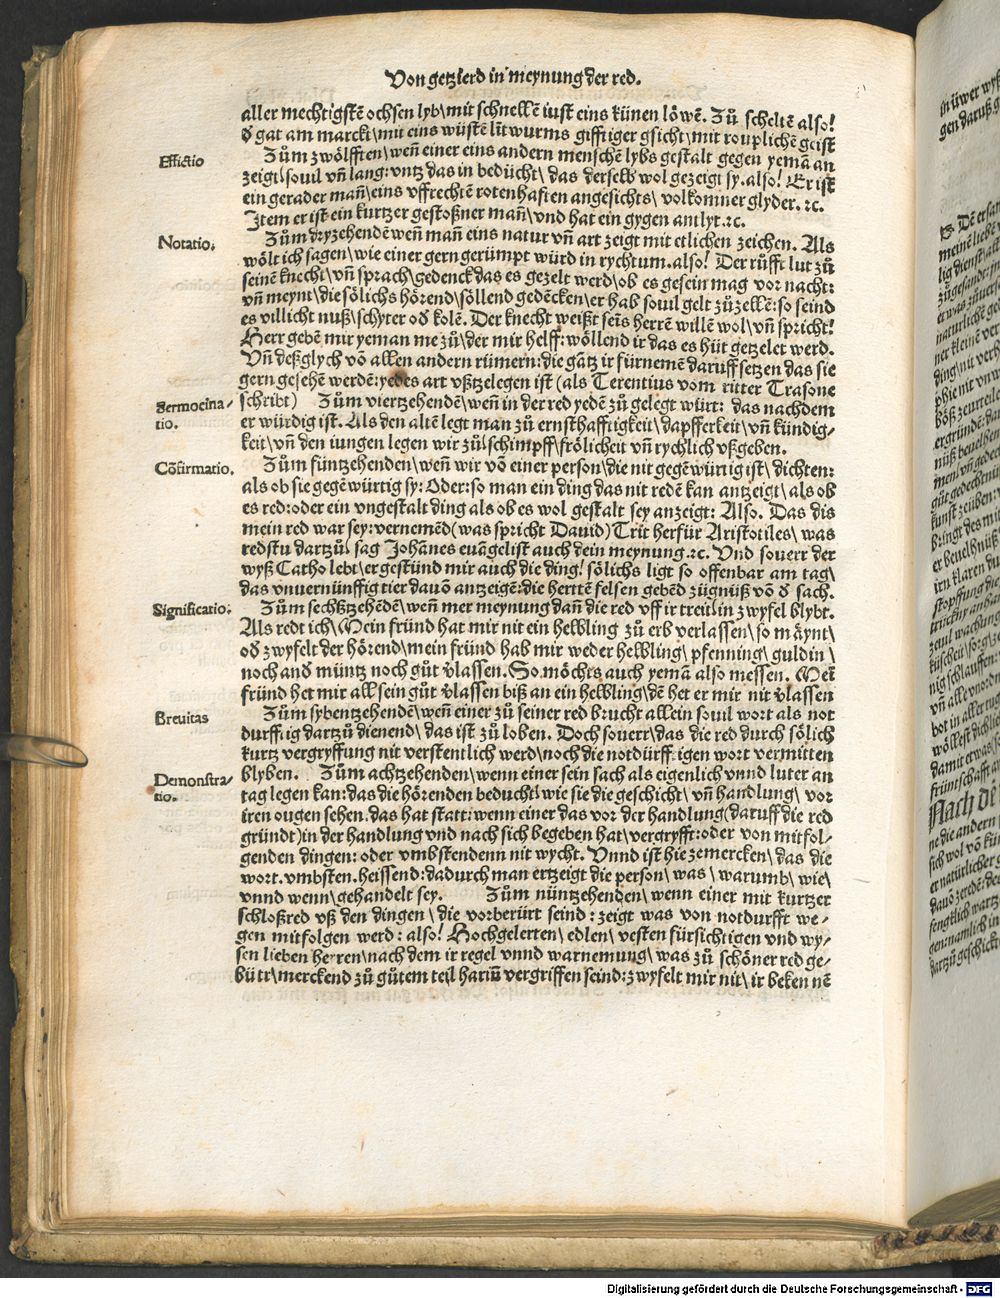 Von getzierd in meynung der red.
aller mechtigstē ochsen lyb\ mit schnellē iust eins künen löwē. Zů scheltē also!
ð gat am marckt\ mit eins wüstē lītwurms gifftiger gsicht\ mit rouplichē geist
Effictio
Zům zwölfften\ weñ einer eins andern menschē lybs gestalt gegen yemā an
zeigt\ souil vñ lang: vntz das in bedücht\ das derselb wol gezeigt sy. also! Er ist
ein gerader mañ\ eins vffrechtē rotenhafften angesichts\ volkomner glyder. ⁊c.
Item er ist ein kurtzer gestoßner mañ\ vnd hat ein gygen antlyt. ⁊c.
Notatio.
Zům dryzehendē weñ mañ eins natur vñ art zeigt mit etlichen zeichen. Als
wölt ich sagen\ wie einer gern gerümpt würd in rychtum. also! Der růfft lut zů
seinē knecht\ vñ sprach\ gedenck das es gezelt werd\ ob es gesein mag vor nacht:
vñ meynt\ die sölichs hörend\ söllend gedēcken\ er hab souil gelt zůzellē: so seind
es villicht nuß\ schyter oð kolē. Der knecht weißt seīs herrē willē wol\ vñ spricht!
Herr gebē mir yeman me zů\ der mir helff: wöllend ir das es hüt getzelet werd.
Vñ deßglych vō allen andern rümern: die gātz ir fürnemē daruff setzen das sie
gern gesehē werdē: yedes art vßtzelegen ist (als Terentius vom ritter Trasone
Sermocina-
tio.
schribt) Zům viertzehendē\ weñ in der red yedē zů gelegt würt: das nachdem
er würdig ist. Als den altē legt man zů ernsthafftigkeit\ dapfferkeit\ vñ kündig-
keit\ vñ den iungen legen wir zů\ schimpff\ frölicheit vñ rychlich vßgeben.
Cōfirmatio.
Zům füntzehenden\ weñ wir vō einer person\ die nit gegēwürtig ist\ dichten:
als ob sie gegēwürtig sy: Oder: so man ein ding das nit redē kan antzeigt\ als ob
es red: oder ein vngestalt ding als ob es wol gestalt sey anzeigt: Also. Das dis
mein red war sey: vernemēd (was spricht Dauid) Trit herfür Aristotiles\ was
redstu dartzů\ sag Johānes euāgelist auch dein meynung. ⁊c. Vnd souerr der
wyß Catho lebt\ er gestünd mir auch die ding! sölichs ligt so offenbar am tag\
das vnuernünfftig tier dauō antzeigē: die hertē felsen gebēd zügnüß vō ð sach.
Significatio.
Zům sechßtzehēdē\ weñ mer meynung dañ die red vff ir treit\ in zwyfel blybt.
Als redt ich\ Mein fründ hat mir nit ein helbling zů erb verlassen\ so māynt\
oð zwyfelt der hörend\ mein fründ hab mir weder helbling\ pfenning\ guldin\
noch anð müntz noch gůt v̄lassen. So möchts auch yemā also messen. Mei
fründ het mir all sein gůt v̄lassen biß an ein helbling\ dē het er mir nit v̄lassen
Breuitas
Zům sybentzehendē\ weñ einer zů seiner red brucht allein souil wort als not
durfftig dartzů dienend\ das ist zů loben. Doch souerr\ das die red durch sölich
kurtz vergryffung nit verstentlich werd\ noch die notdürfftigen wort vermitten
Demonstra-
tio.
blyben. Zům achtzehenden\ wenn einer sein sach als eigenlich vnnd luter an
tag legen kan: das die hörenden beducht\ wie sie die geschicht\ vñ handlung\ vor
iren ougen sehen. das hat statt: wenn einer das vor der handlung (daruff die red
gründt) in der handlung vnd nach sich begeben hat\ vergryfft: oder von mitfol-
genden dingen: oder vmbstendenn nit wycht. Vnnd ist hie zemercken\ das die
wort. vmbsten. heissend: dadurch man ertzeigt die person\ was\ warumb\ wie\
vnnd wenn\ gehandelt sey. Zům nüntzehenden\ wenn einer mit kurtzer
schloßred vß den dingen\ die vorberürt seind: zeigt was von notdurfft we-
gen mitfolgen werd: also! Hochgelerten\ edlen\ vesten fürsichtigen vnd wy-
sen lieben herren\ nach dem ir regel vnnd warnemung\ was zů schöner red ge-
bürt\ merckend zů gůtem teil hariñ vergriffen seind: zwyfelt mir nit\ ir bekennē
Digitalisierung gefördert durch die Deutsche Forschungsgemeinschaft - DFG